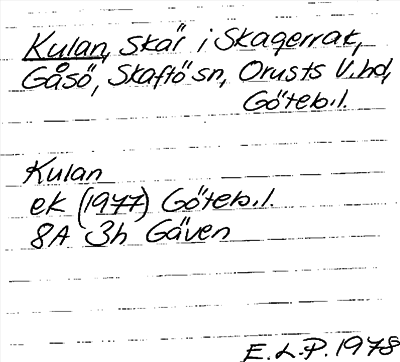 Kulan, Skär i Skagerrak,
Gåsö, Skaftö sn, Orusts V. hd,
Göteb.l.
Kulan
ek (1977) Göteb.l.
8A 3h Gäven
E.L.P. 1978